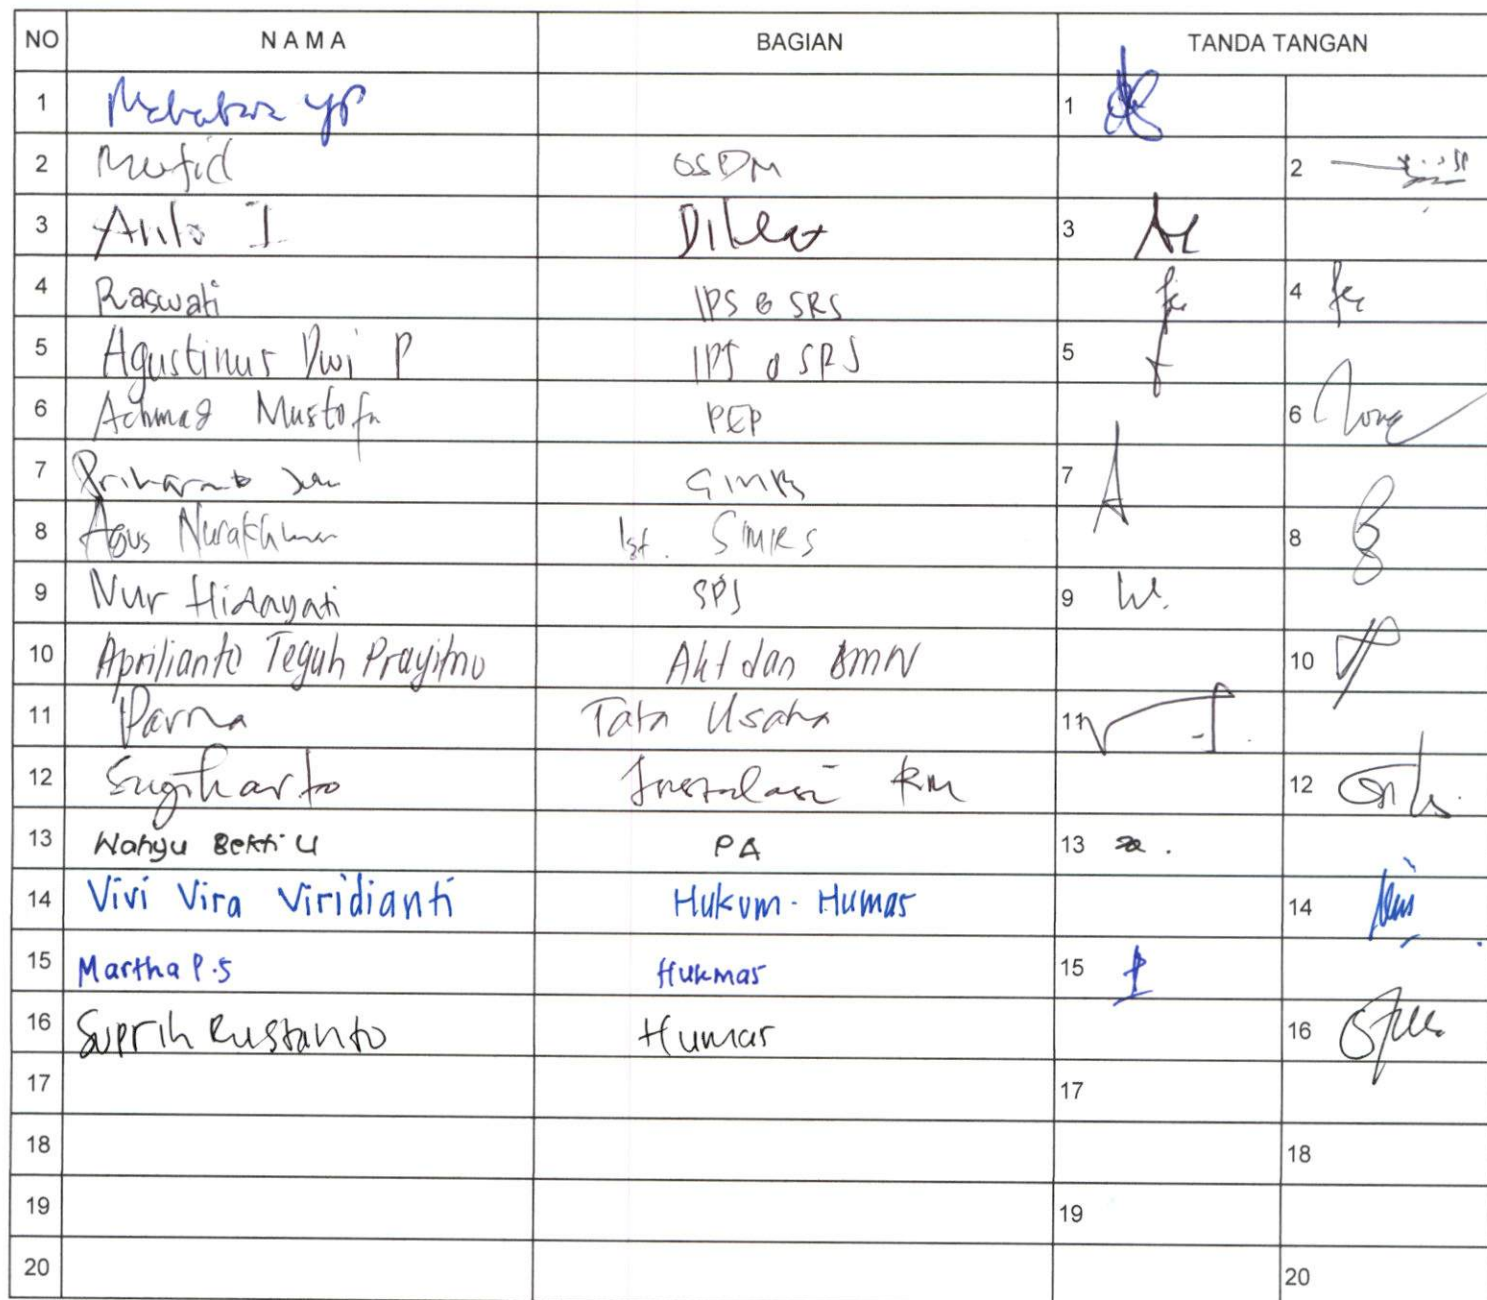 NO NAMA BAGIAN TANDA TANGAN
1 1
2 Mufid OSDM 2
3 I Diklat 3
4 Raswati IPS & SRS 4
5 Agustinus Dwi P IPS & SRS 5
6 Achmad Mustofa PEP 6
7 7
8 Agus Ist. SIMRS 8
9 Nur Hidayati SPI 9
10 Aprilianto Teguh Prayitno Akt dan BMN 10
11 Parna Tata Usaha 11
12 Sugiharto Instalasi RM 12
13 Wahyu Bekti U PA 13
14 Vivi Vira Viridianti Hukum - Humas 14
15 Martha P.S Hukmas 15
16 Suprih Rustanto Humas 16
17 17
18 18
19 19
20 20